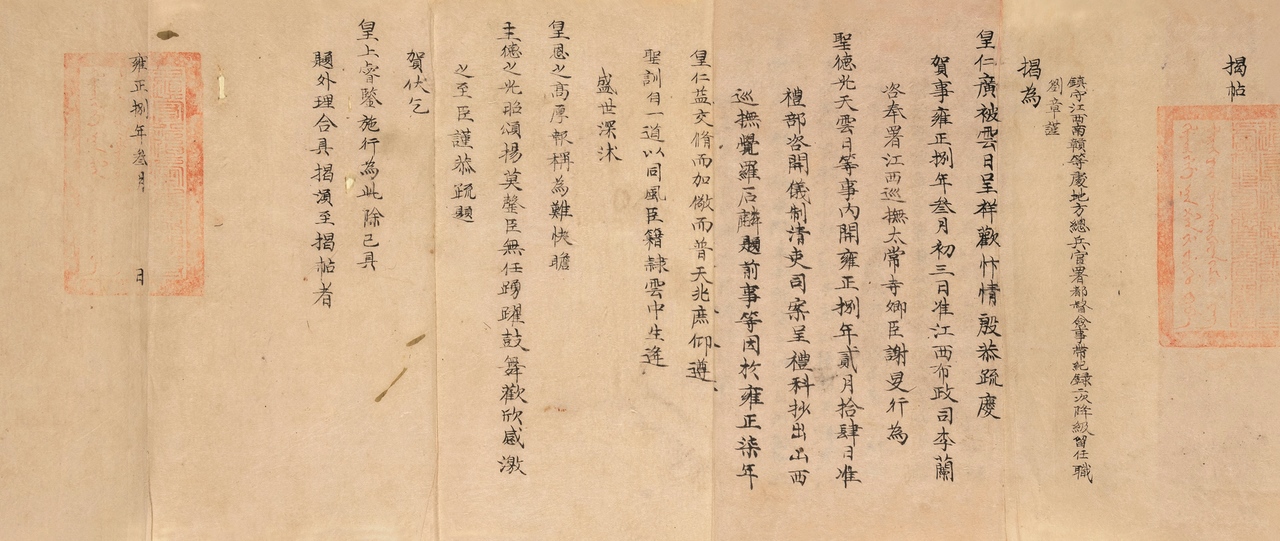 揭帖
鎮守江西南贛等處地方總兵官署都督僉事帶紀錄二次降級留任職
劉章謹
揭為
皇仁廣被雲日呈祥歡忭情殷恭疏慶
賀事雍正捌年叁月初三日准江西布政司李蘭
咨奉署江西巡撫太常寺卿臣謝旻行為
聖德光天雲日等事內開雍正捌年貳月拾肆日准
禮部咨開儀制清吏司案呈禮科抄出山西
巡撫覺羅石麟題前事等因於雍正柒年
皇仁益交脩而加儆而普天兆庶仰遵
聖訓自一道以同風臣籍隸雲中生逢
盛世深沐
皇恩之高厚報稱為難快瞻
主德之光昭頌揚莫罄臣無任踴躍鼓舞歡欣感激
之至臣謹恭疏題
賀伏乞
皇上睿鑒施行為此除已具
題外理合具揭須至揭帖者
雍正捌年叁月 日